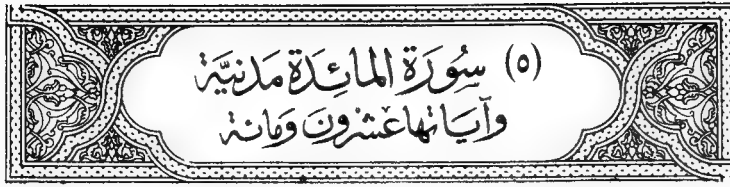 (٥) سُورَة المَائِدَة مَدَنِيَّة
وَآيَاتهَا عَشْرُونَ وَمَائة